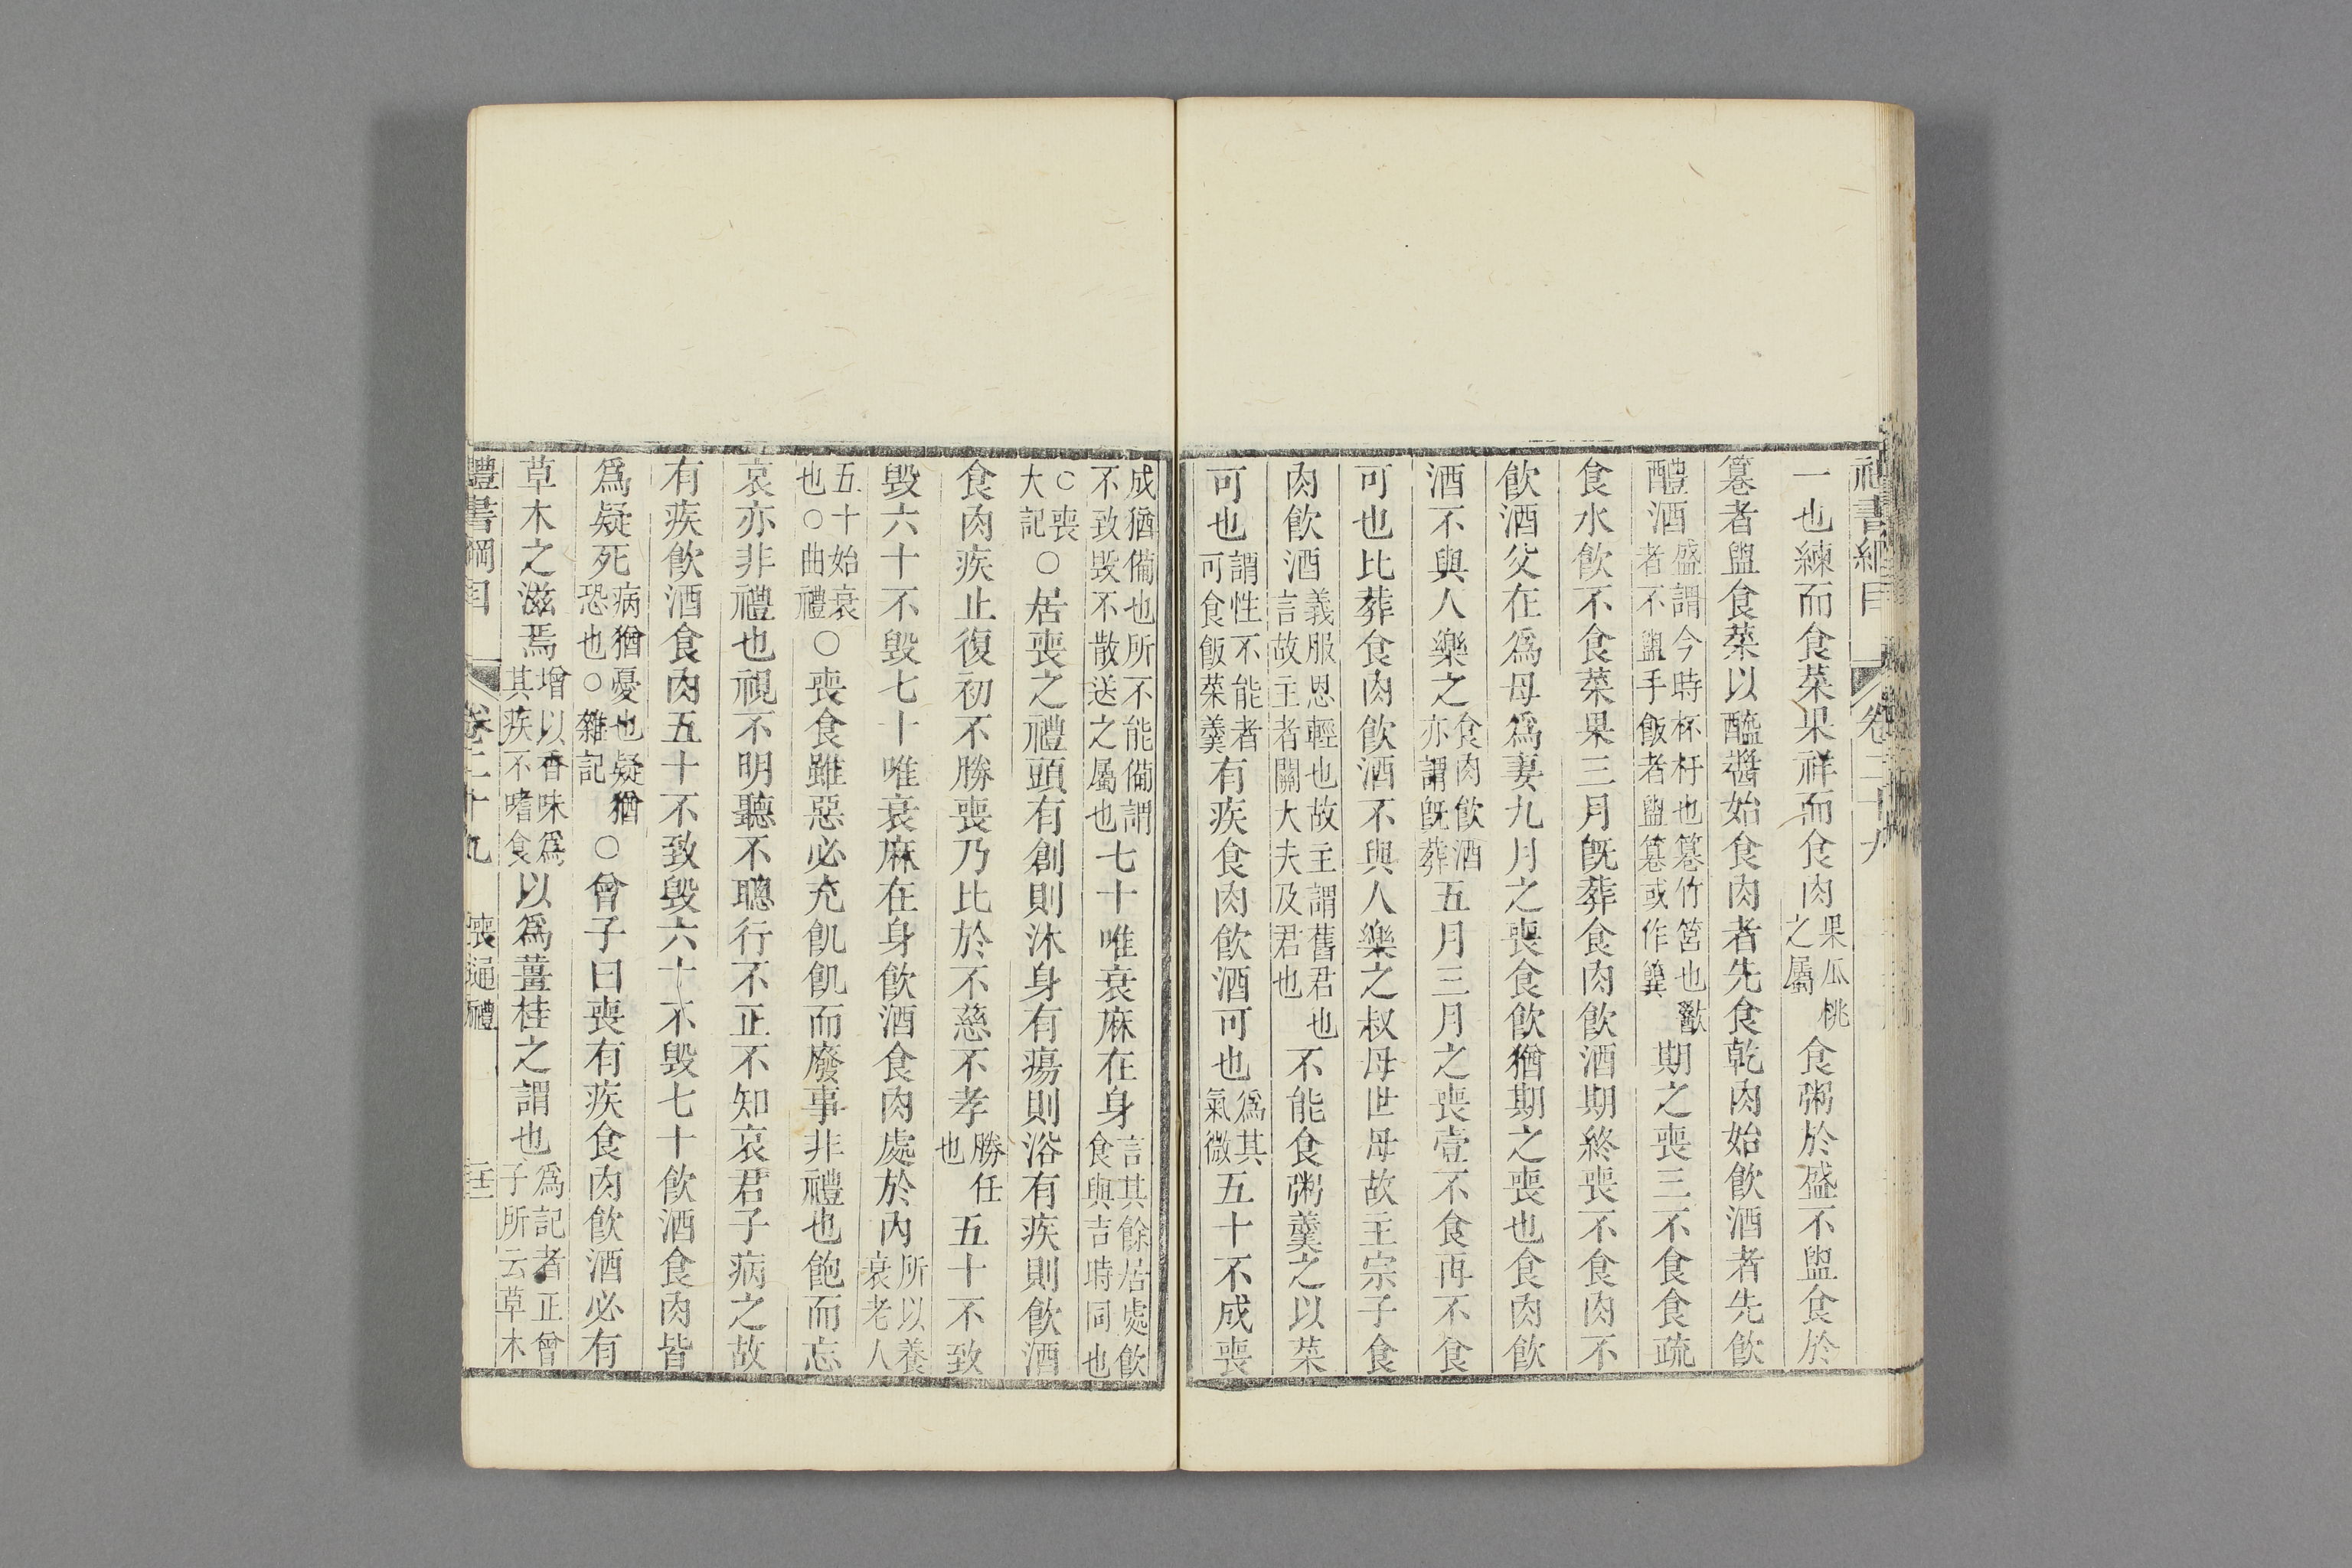 禮書綱目 卷二十九
一也練而食菜果祥而食肉果瓜桃之屬食粥於盛不盥食於
篹者盥食菜以醯醬始食肉者先食乾肉始飲酒者先飲
醴酒盛謂今時杯杅也篹竹筥也歠者不盥手飯者盥篹或作簨期之喪三不食食疏
食水飲不食菜果三月旣葬食肉飲酒期終喪不食肉不
飲酒父在爲母爲妻九月之喪食飲猶期之喪也食肉飲
酒不與人樂之食肉飲酒亦謂旣葬五月三月之喪壹不食再不食
可也比葬食肉飲酒不與人樂之叔母世母故主宗子食
肉飲酒義服恩輕也故主謂舊君也言故主者關大夫及君也不能食粥羹之以菜
可也謂性不能者可食飯菜羹有疾食肉飲酒可也爲其氣微五十不成喪
成猶備也所不能備謂不致毀不散送之屬也七十唯衰麻在身言其餘居處飲食與吉時同也
○喪大記○居喪之禮頭有創則沐身有瘍則浴有疾則飲酒
食肉疾止復初不勝喪乃比於不慈不孝勝任也五十不致
毀六十不毀七十唯衰麻在身飲酒食肉處於內所以養衰老人
五十始衰也○曲禮○喪食雖惡必充飢飢而廢事非禮也飽而忘
哀亦非禮也視不明聽不聰行不正不知哀君子病之故
有疾飲酒食肉五十不致毀六十不毀七十飲酒食肉皆
爲疑死病猶憂也疑猶恐也○雜記○曾子曰喪有疾食肉飲酒必有
草木之滋焉增以香味爲其疾不嗜食以爲薑桂之謂也爲記者正曾子所云草木
禮書綱目 卷二十九 喪通禮